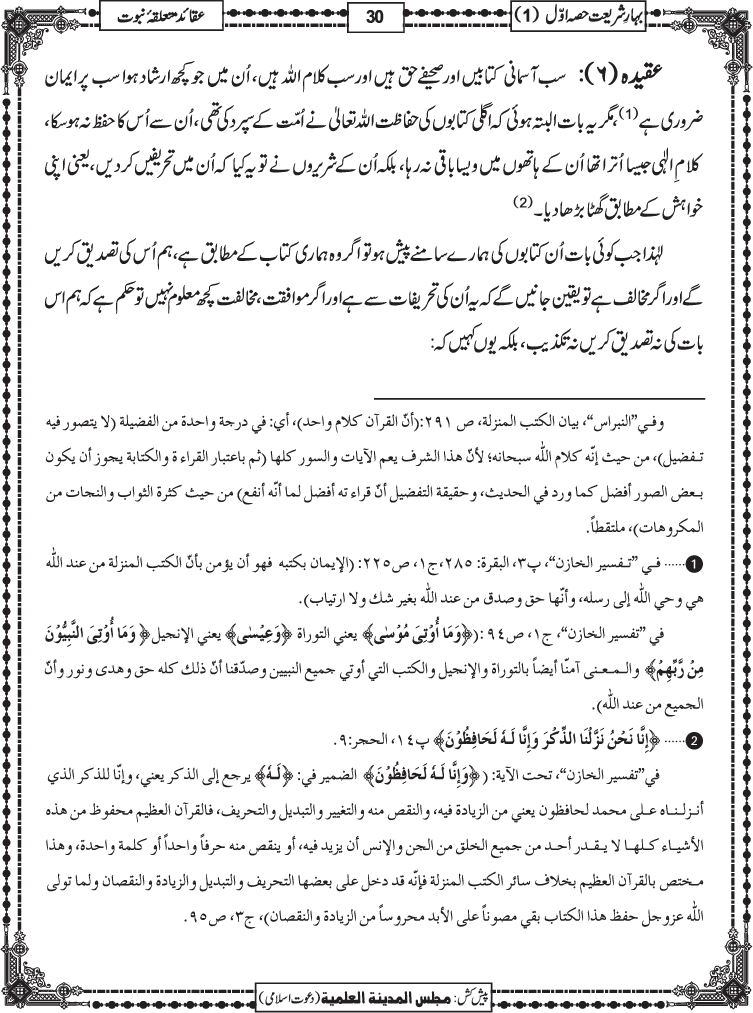 بہارِ شریعت حصہ اوّل (1)
30
عقائد متعلقۂ نبوت
عقیدہ (۶): سب آسمانی کتابیں اور صحیفے حق ہیں اور سب کلام اللہ ہیں، اُن میں جو کچھ ارشاد ہوا سب پر ایمان
ضروری ہے(1)، مگر یہ بات البتہ ہوئی کہ اگلی کتابوں کی حفاظت اللہ تعالیٰ نے اُمّت کے سپرد کی تھی، اُن سے اُس کا حفظ نہ ہوسکا،
کلامِ الٰہی جیسا اُترا تھا اُن کے ہاتھوں میں ویسا باقی نہ رہا، بلکہ اُن کے شریروں نے تو یہ کیا کہ اُن میں تحریفیں کر دیں، یعنی اپنی
خواہش کے مطابق گھٹا بڑھا دیا۔(2)
لہٰذا جب کوئی بات اُن کتابوں کی ہمارے سامنے پیش ہو تو اگر وہ ہماری کتاب کے مطابق ہے، ہم اُس کی تصدیق کریں
گے اور اگر مخالف ہے تو یقین جانیں گے کہ یہ اُن کی تحریفات سے ہے اور اگر موافقت، مخالفت کچھ معلوم نہیں تو حکم ہے کہ ہم اس
بات کی نہ تصدیق کریں نہ تکذیب، بلکہ یوں کہیں کہ:
وفـي ”النبراس“، بيان الكتب المنزلة، ص ۲۹۱:(أنّ القرآن كلام واحد)، أي: في درجة واحدة من الفضيلة (لا يتصور فيه
تـفضيل)، من حيث إنّه كلام اللّٰه سبحانه؛ لأنّ هذا الشرف يعم الآيات والسور كلها (ثم باعتبار القراء ة والكتابة يجوز أن يكون
بـعض الصور أفضل كما ورد في الحديث، وحقيقة التفضيل أنّ قراء ته أفضل لما أنّه أنفع) من حيث كثرة الثواب والنجات من
المكروهات)، ملتقطاً.
1 ...... فـي ”تـفسير الخازن“، پ۳، البقرة: ۲۸۵، ج۱، ص۲۲۵: (الإيمان بكتبه فهو أن يؤمن بأنّ الكتب المنزلة من عند اللّٰه
هي وحي اللّٰه إلى رسله، وأنّها حق وصدق من عند اللّٰه بغير شك ولا ارتياب).
في ”تفسير الخازن“، ج۱، ص۹۴ :(﴿وَمَا أُوْتِىَ مُوْسٰى﴾ يعني التوراة ﴿وَعِيْسٰى﴾ يعني الإنجيل﴿ وَمَا أُوْتِىَ النَّبِيُّوْنَ
مِنْ رَّبِّهِمْ﴾ والـمـعـنى آمنّا أيضاً بالتوراة والإنجيل والكتب التي أوتي جميع النبيين وصدّقنا أنّ ذلك كله حق وهدى ونور وأنّ
الجميع من عند اللّٰه).
2 ...... ﴿إِنَّا نَحْنُ نَزَّلْنَا الذِّكْرَ وَإِنَّا لَـهٗ لَحَافِظُوْنَ﴾ پ۱۴، الحجر:۹.
في”تفسير الخازن“، تحت الآية: (﴿وَإِنَّا لَهٗ لَحَافِظُوْنَ﴾ الضمير في: ﴿لَهٗ﴾ يرجع إلى الذكر يعني، وإنّا للذكر الذي
أنـزلـنـاه عـلـى محمد لحافظون يعني من الزيادة فيه، والنقص منه والتغيير والتبديل والتحريف، فالقرآن العظيم محفوظ من هذه
الأشيـاء كـلهـا لا يـقـدر أحـد من جميع الخلق من الجن والإنس أن يزيد فيه، أو ينقص منه حرفاً واحداً أو كلمة واحدة، وهذا
مـختص بالقرآن العظيم بخلاف سائر الكتب المنزلة فإنّه قد دخل على بعضها التحريف والتبديل والزيادة والنقصان ولما تولى
اللّٰه عزوجل حفظ هذا الكتاب بقي مصوناً على الأبد محروساً من الزيادة والنقصان)، ج۳، ص۹۵.
پیش کش: مجلس المدینۃ العلمیۃ (دعوت اسلامی)